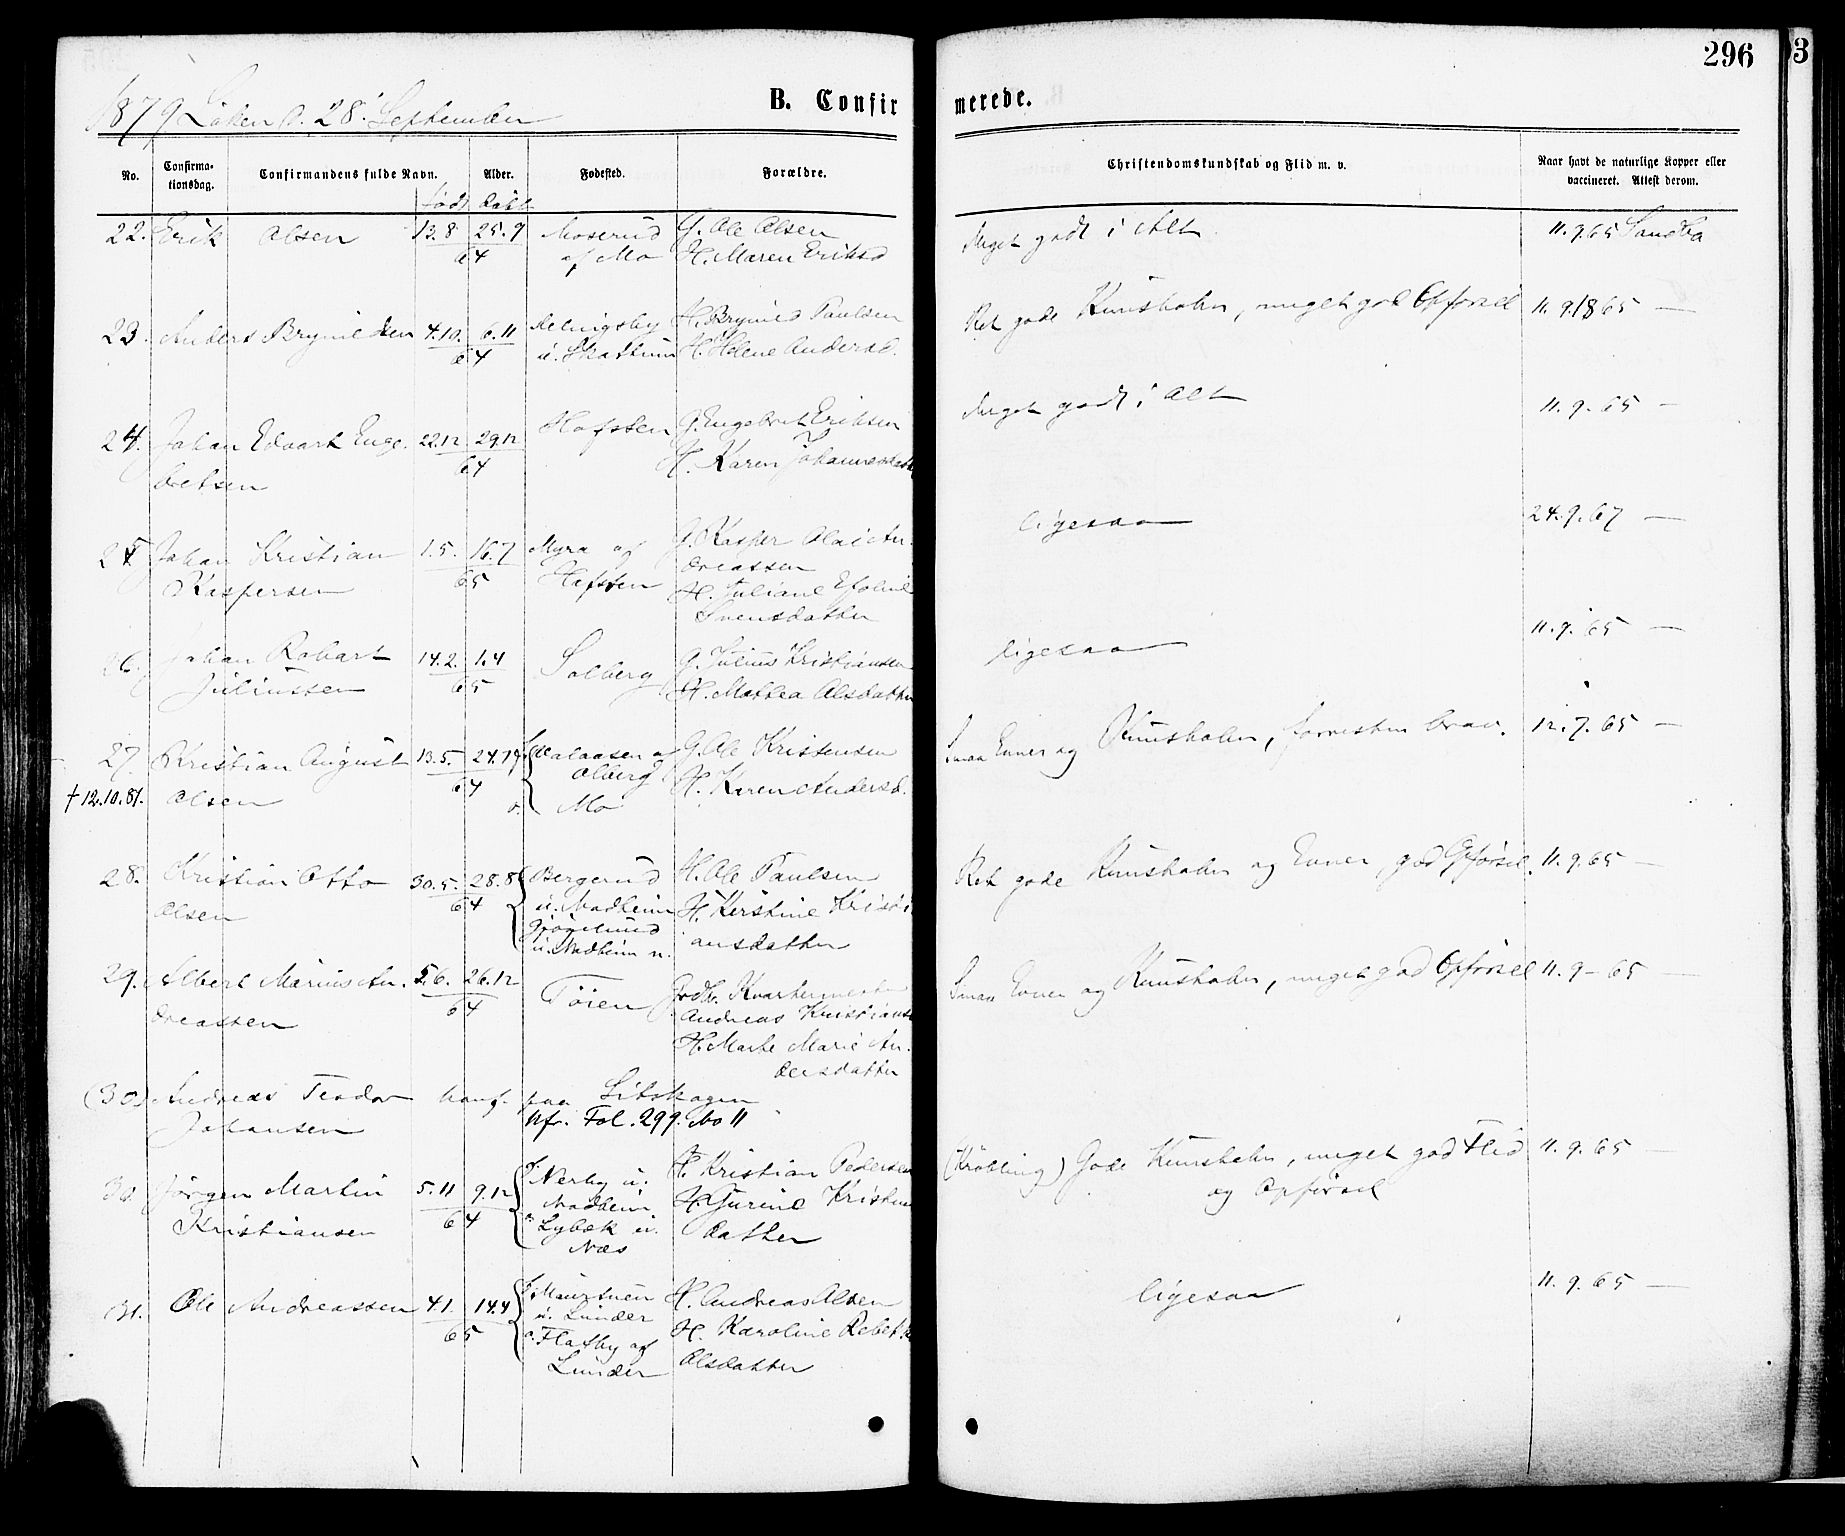 296
1879 Løken d. 28' September
B. Confirmerede.
No. Confirmationsdag. Confirmandens fulde Navn. Alder. Fødested. Forældre. Christendomskundskab og Flid m. v. Naar havt de naturlige Kopper eller vaccineret. Attest derom.
født døbt
22. Erik Olsen 13.8 25.9 Moserud G. Ole Olsen Meget godt i Alt 11.9.65 Sandba
64 af Mo H. Maren Eriksd
23. Anders Brynildsen 4.10. 6.11 H. Brynild Paulsen Ret gode Kunskaber, meget god Opførsel 11.9.1865 —
64 u. Skattum H. Helene Andersd.
24. Johan Edvart Enge- 22.12 29.12 Hofsten G. Engebret Eriksen Meget godt i Alt 11.9.65 —
bretsen 64 H. Karen Johannesdatt
25 Johan Kristian 1.5. 16.7 Myra af G. Kasper Olai An- ligesaa 24.9.67 —
Kaspersen 65 Hofsten dreassen
H. Juliane
Svensdatter
26. Johan Robart 14.2. 1.4 Solberg G. Julius Kristiansen ligesaa 11.9.65 —
Juliussen 65 H. Mathea Olsdatter
27. Kristian August 13.5. 24.7 G. Ole Kristensen Smaa Evner og Kunskaber, forresten brav. 12.7.65 —
† 12.10.81. Olsen 64 Mo H. Karen Andersd.
28. Kristian Otto 30.5. 28.8 Bergerud H. Ole Paulsen Ret gode Kunskaber og Evner, god Opførsel. 11.9.65 —
Olsen 64 u. Nadheim H. Kerstine Kristi
u. Nadheim ansdatter
29. Albert Marius An- 5.6. 26.12 Tøien Kvartermester Smaa Evner og Kunskaber, meget god Opførsel 11.9-65 —
dreassen 64 Andreas Kristians
H. Marte Marie An-
dersdatter
(30) Andreas Teodor konf. paa Sitskogen
Johansen kfr. Fol. 299. No 11
30. Jørgen Martin 5.11 9.12 f. Nerby u. H. Kristian Pedersen (Krøbling) Gode Kunskaber, meget god Flid 11.9.65 —
Kristiansen 64 Nadheim H. Gurine Kristens og Opførsel
Lybæk u. datter
Næs
31. Ole Andreassen 4.1. 14.4 f. H. Andreas Olsen ligesaa 11.9.65 —
65 u. Lunder H. Karoline
o. Flatby af Olsdatter
Lunder